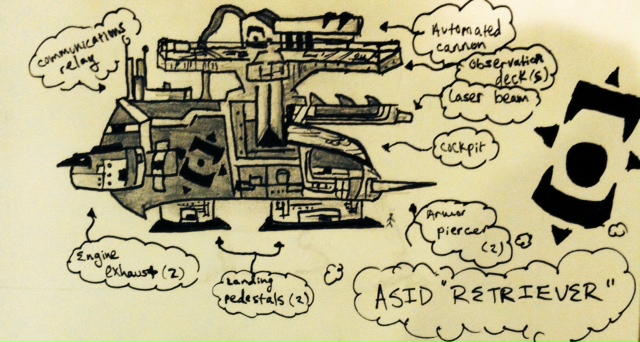 communications
relay
Automated
cannon
observation
deck(s)
Laser beam
cockpit
Armor
piercer
(2)
Engine
exhaust (2)
Landing
pedestals (2)
ASID "RETRIEVER"